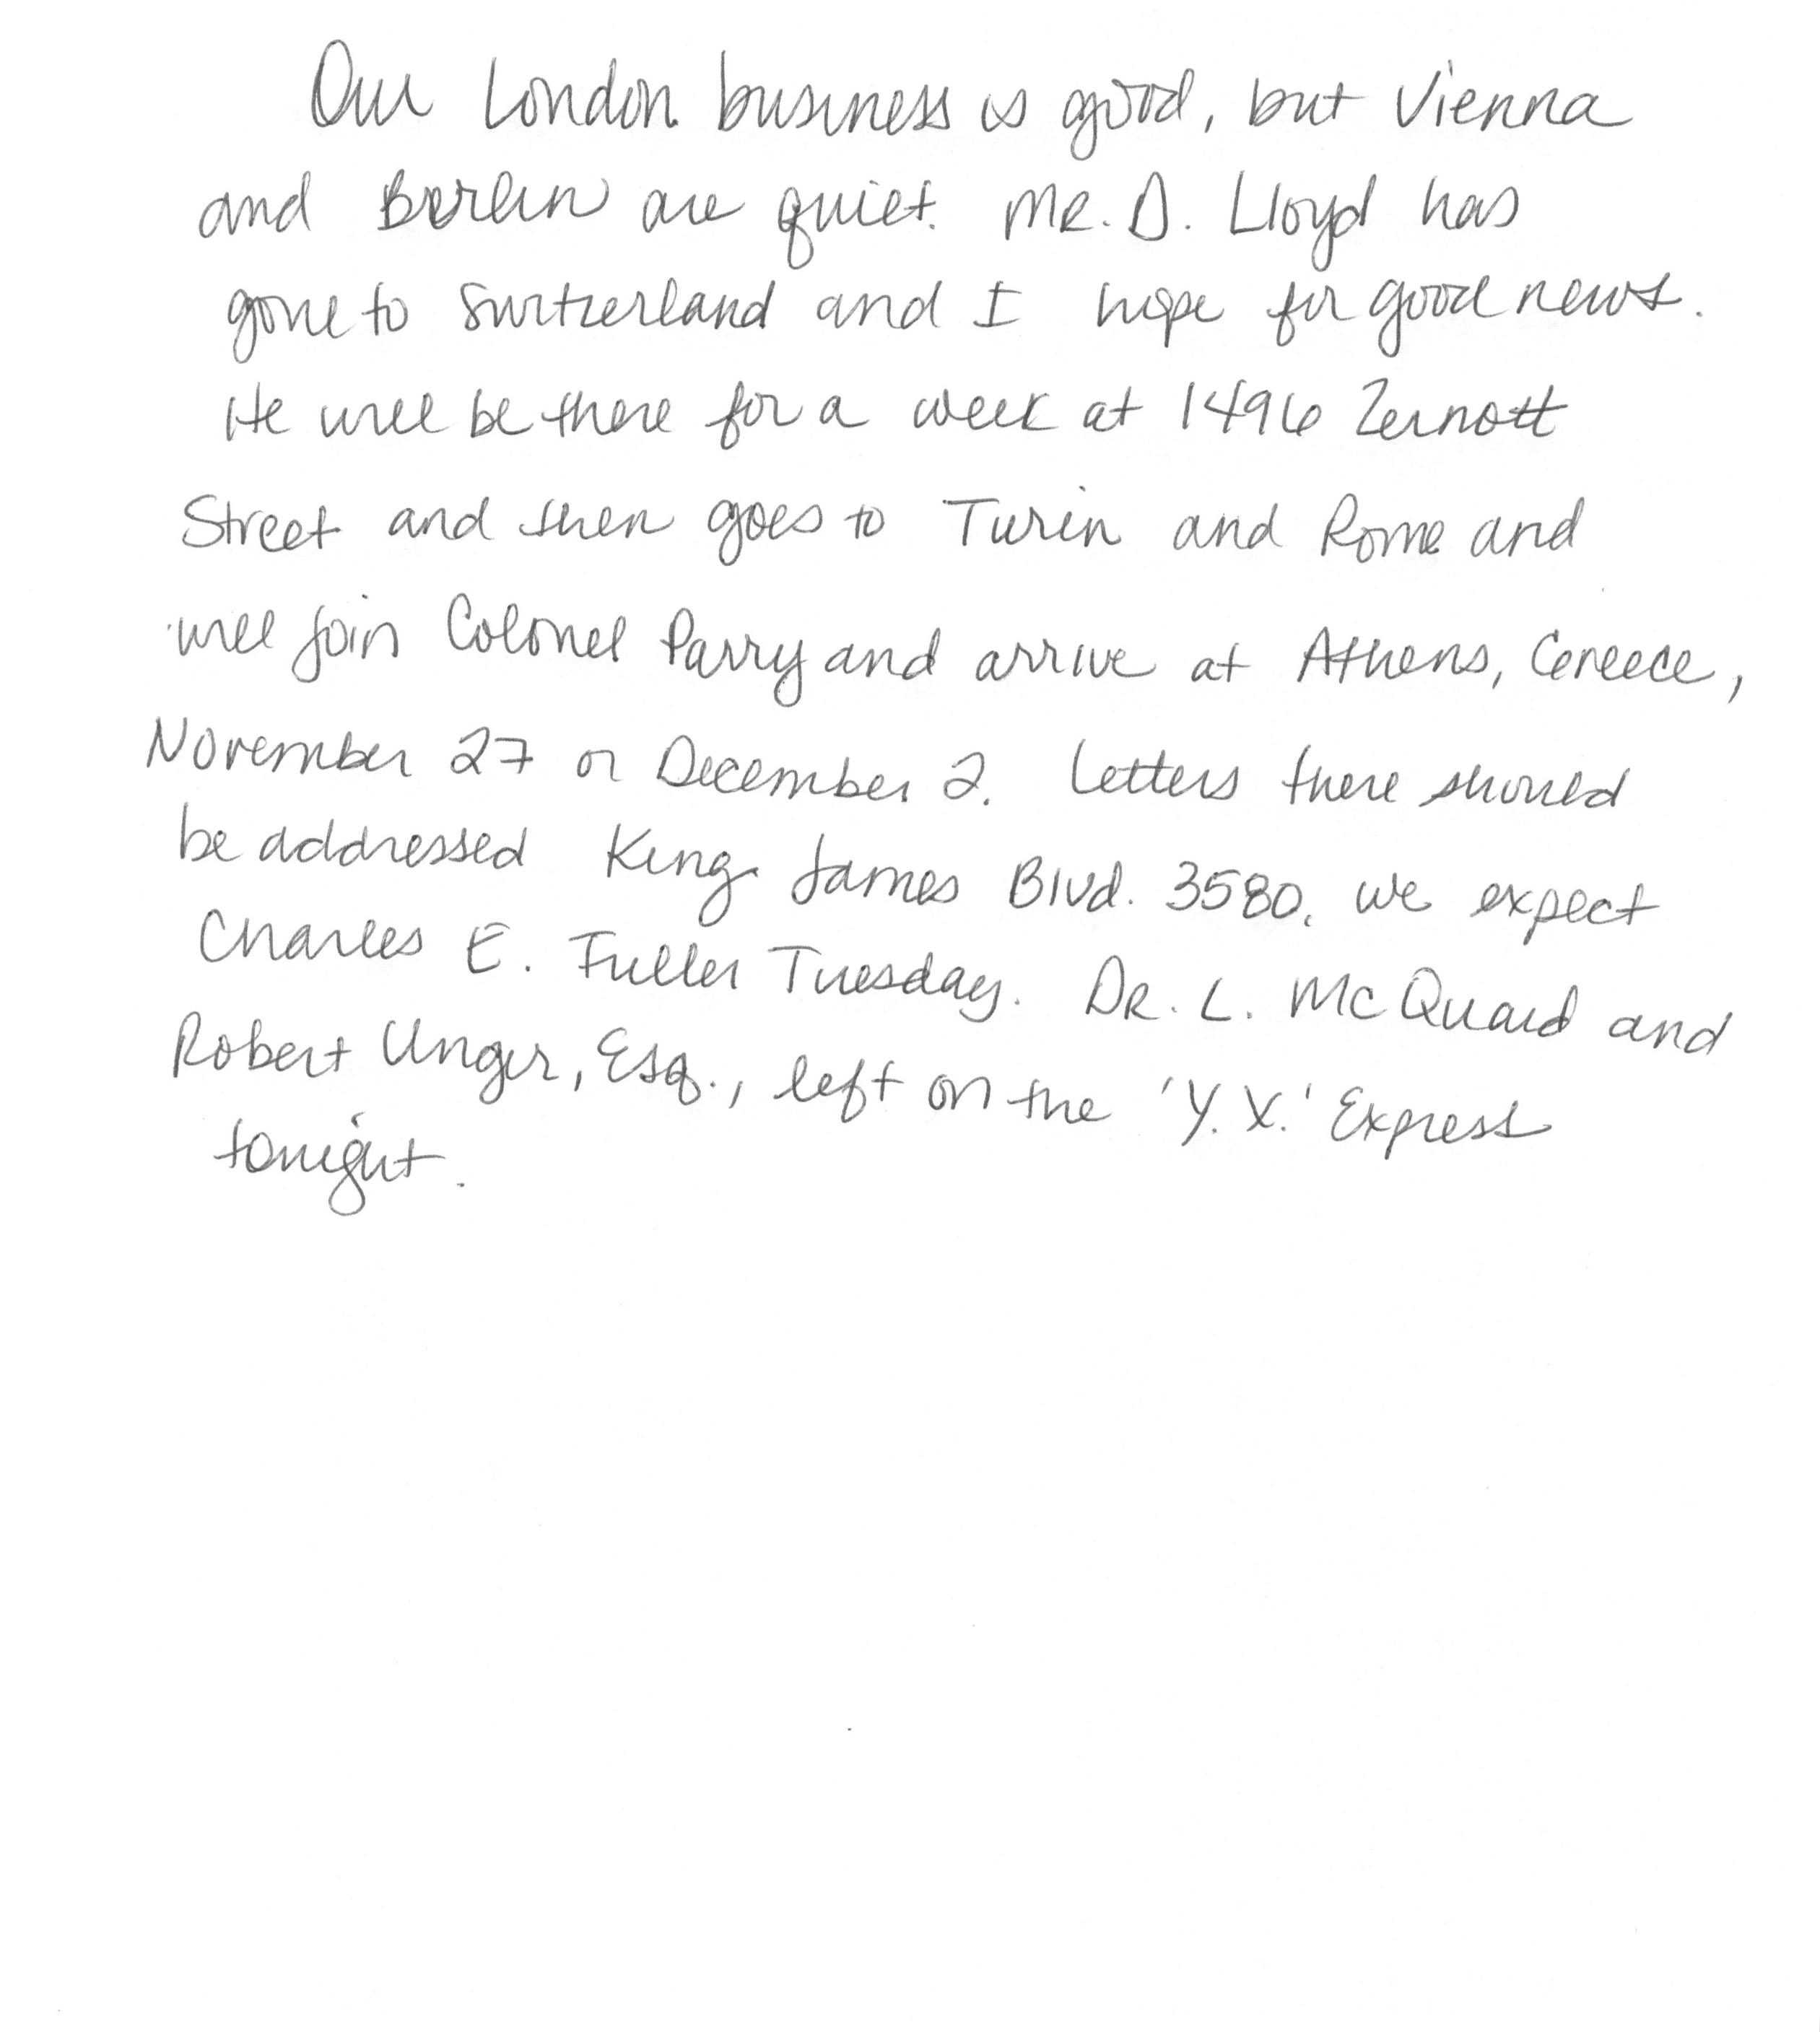 Our London business is good, but Vienna
and Berlin are quiet. Mr. D. Lloyd has
gone to Switzerland and I hope for good news.
He will be there for a week at 1496 Zermott
Street and then goes to Turin and Rome and
will join Colonel Parry and arrive at Athens, Greece,
November 27 or December 2. Letters there should
be addressed King James Blvd. 3580. We expect
Charles E. Fuller Tuesday. Dr. L. McQuaid and
Robert Unger, Esq., left on the 'Y.X.' Express
tonight.